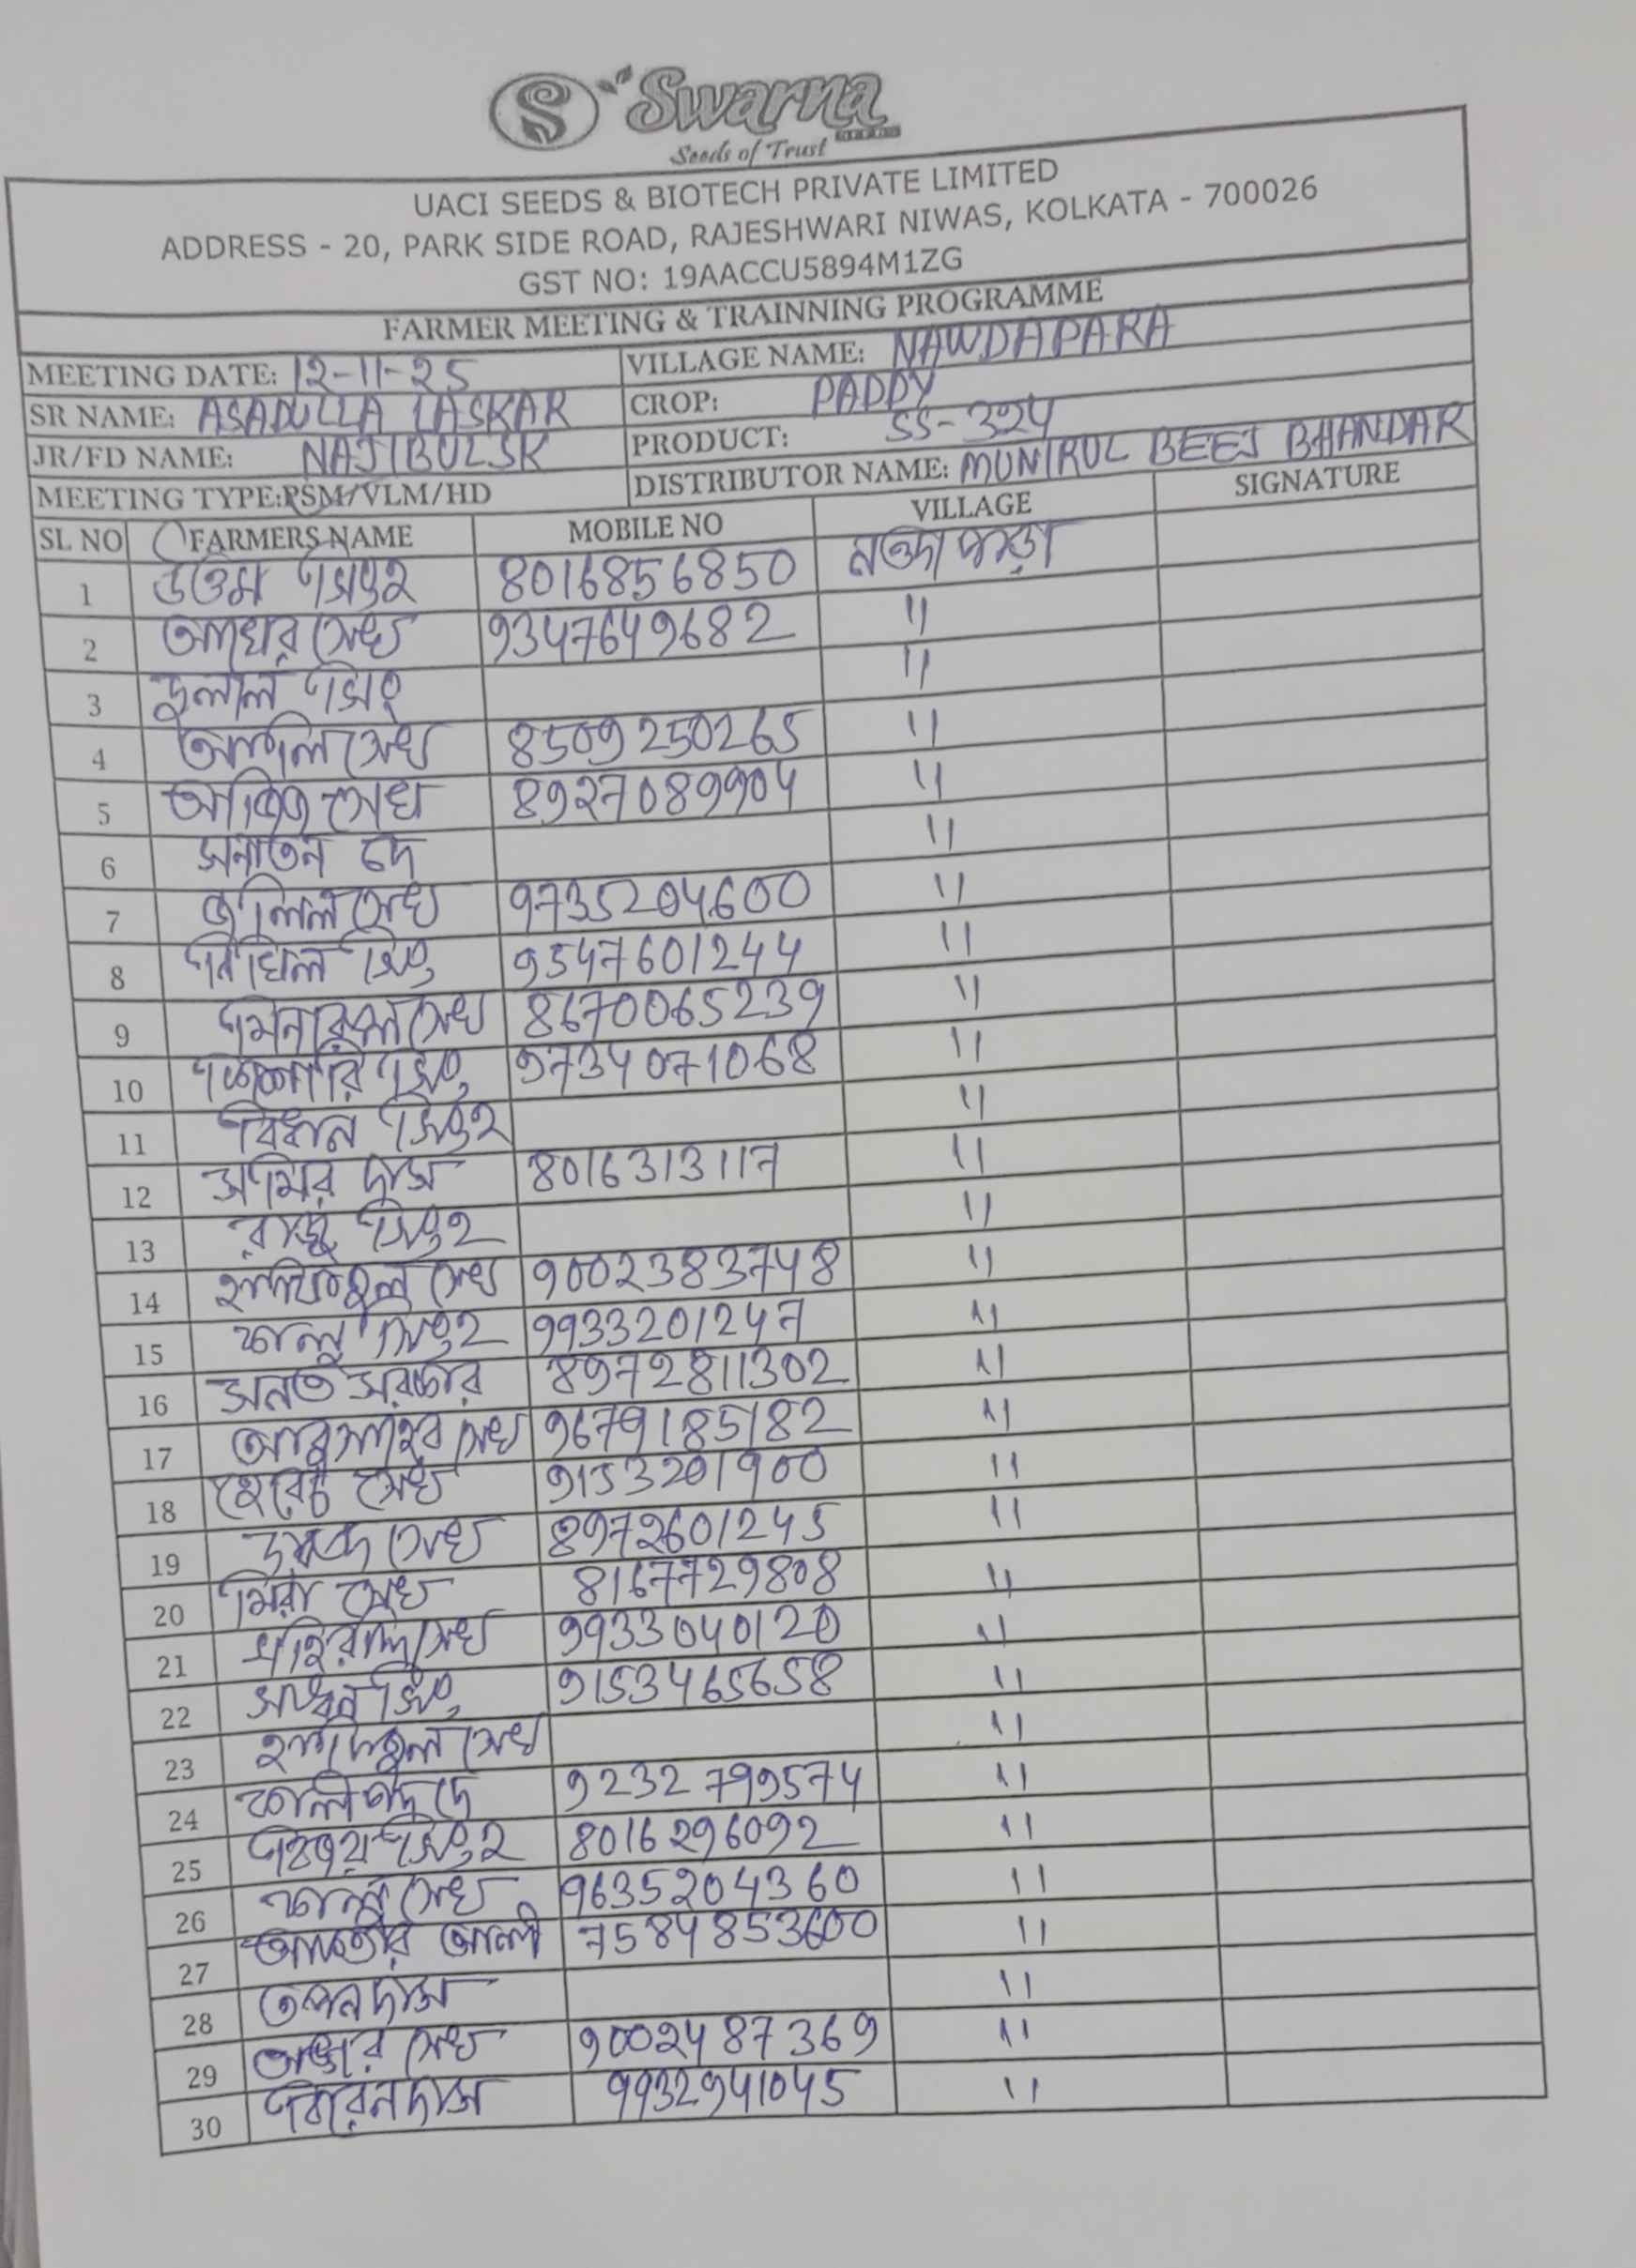 Swarna
Seeds of Trust
UACI SEEDS & BIOTECH PRIVATE LIMITED
ADDRESS - 20, PARK SIDE ROAD, RAJESHWARI NIWAS, KOLKATA - 700026
GST NO: 19AACCU5894M1ZG
FARMER MEETING & TRAINNING PROGRAMME
MEETING DATE: 12-11-25 VILLAGE NAME: NAWDAPARA
SR NAME: ASADULLA LASKAR CROP: PADDY
JR/FD NAME: NAJIBULSK PRODUCT: SS-324
MEETING TYPE:PSM/VLM/HD DISTRIBUTOR NAME: MUNIRUL BEEJ BHANDAR
SL NO FARMERS NAME MOBILE NO VILLAGE SIGNATURE
1 উত্তম সিংহ 8016856850 নওদাপাড়া
2 সেখ 9347649682 "
3 দুলাল সিং "
4 সেখ 8509250265 "
5 আজিজ সেখ 8927089904 "
6 সনাতন দে "
7 জলিল সেখ 9735204600 "
8 নিখিল সিং 9547601244 "
9 মিনারুল সেখ 8670065239 "
10 সিং 9734071068 "
11 বিধান সিংহ "
12 সমির দাস 8016313117 "
13 রাজু সিংহ "
14 সেখ 9002383748 "
15 কালু সিংহ 9933201247 "
16 সনত সরকার 8972811302 "
17 সেখ 9679185182 "
18 সেখ 9153201900 "
19 সেখ 8972601245 "
20 মিরা সেখ 8167729808 "
21 সেখ 9933040120 "
22 সাধন সিং 9153465658 "
23 সেখ "
24 কালিপদ দে 9232799574 "
25 বিজয় সিংহ 8016296092 "
26 কালু সেখ 9635204360 "
27 আলী 7584853600 "
28 তপন দাস "
29 সেখ 9002487369 "
30 বিরেন দাস 9932941045 "